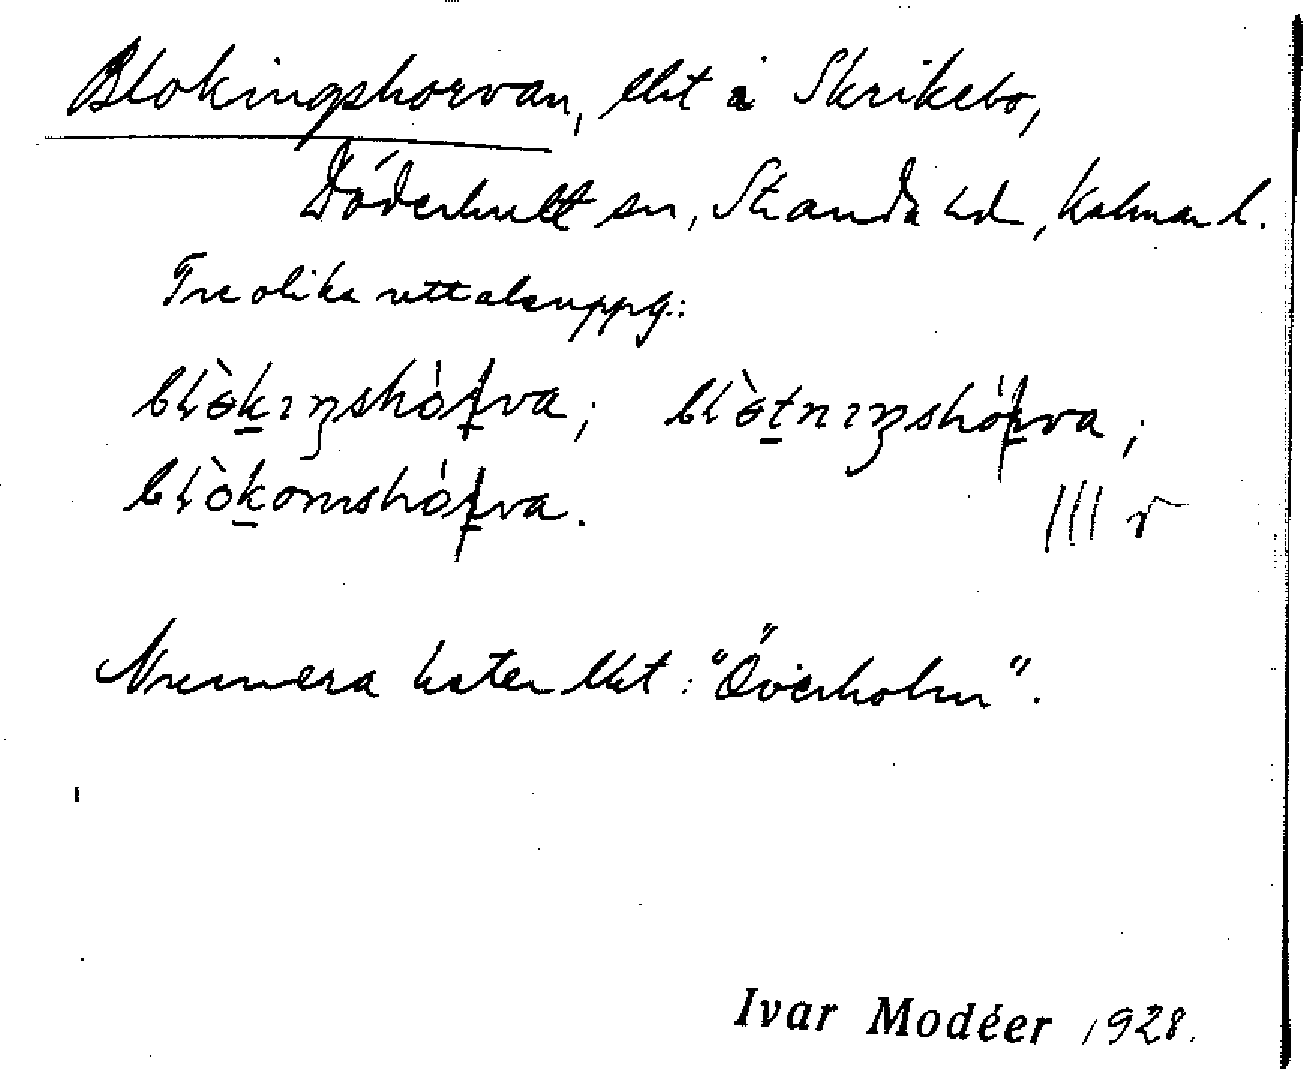 Blokingshorvan, lht i Skrikebo,
Döderhult sn, Stranda hd, Kalmar l.
Tre olika uttalsuppg.:
blòkıŋshórva; blòtnıŋshórva;
blòkomshórva. III r
Numera heter lht: "Överholm".
Ivar Modéer 1928.